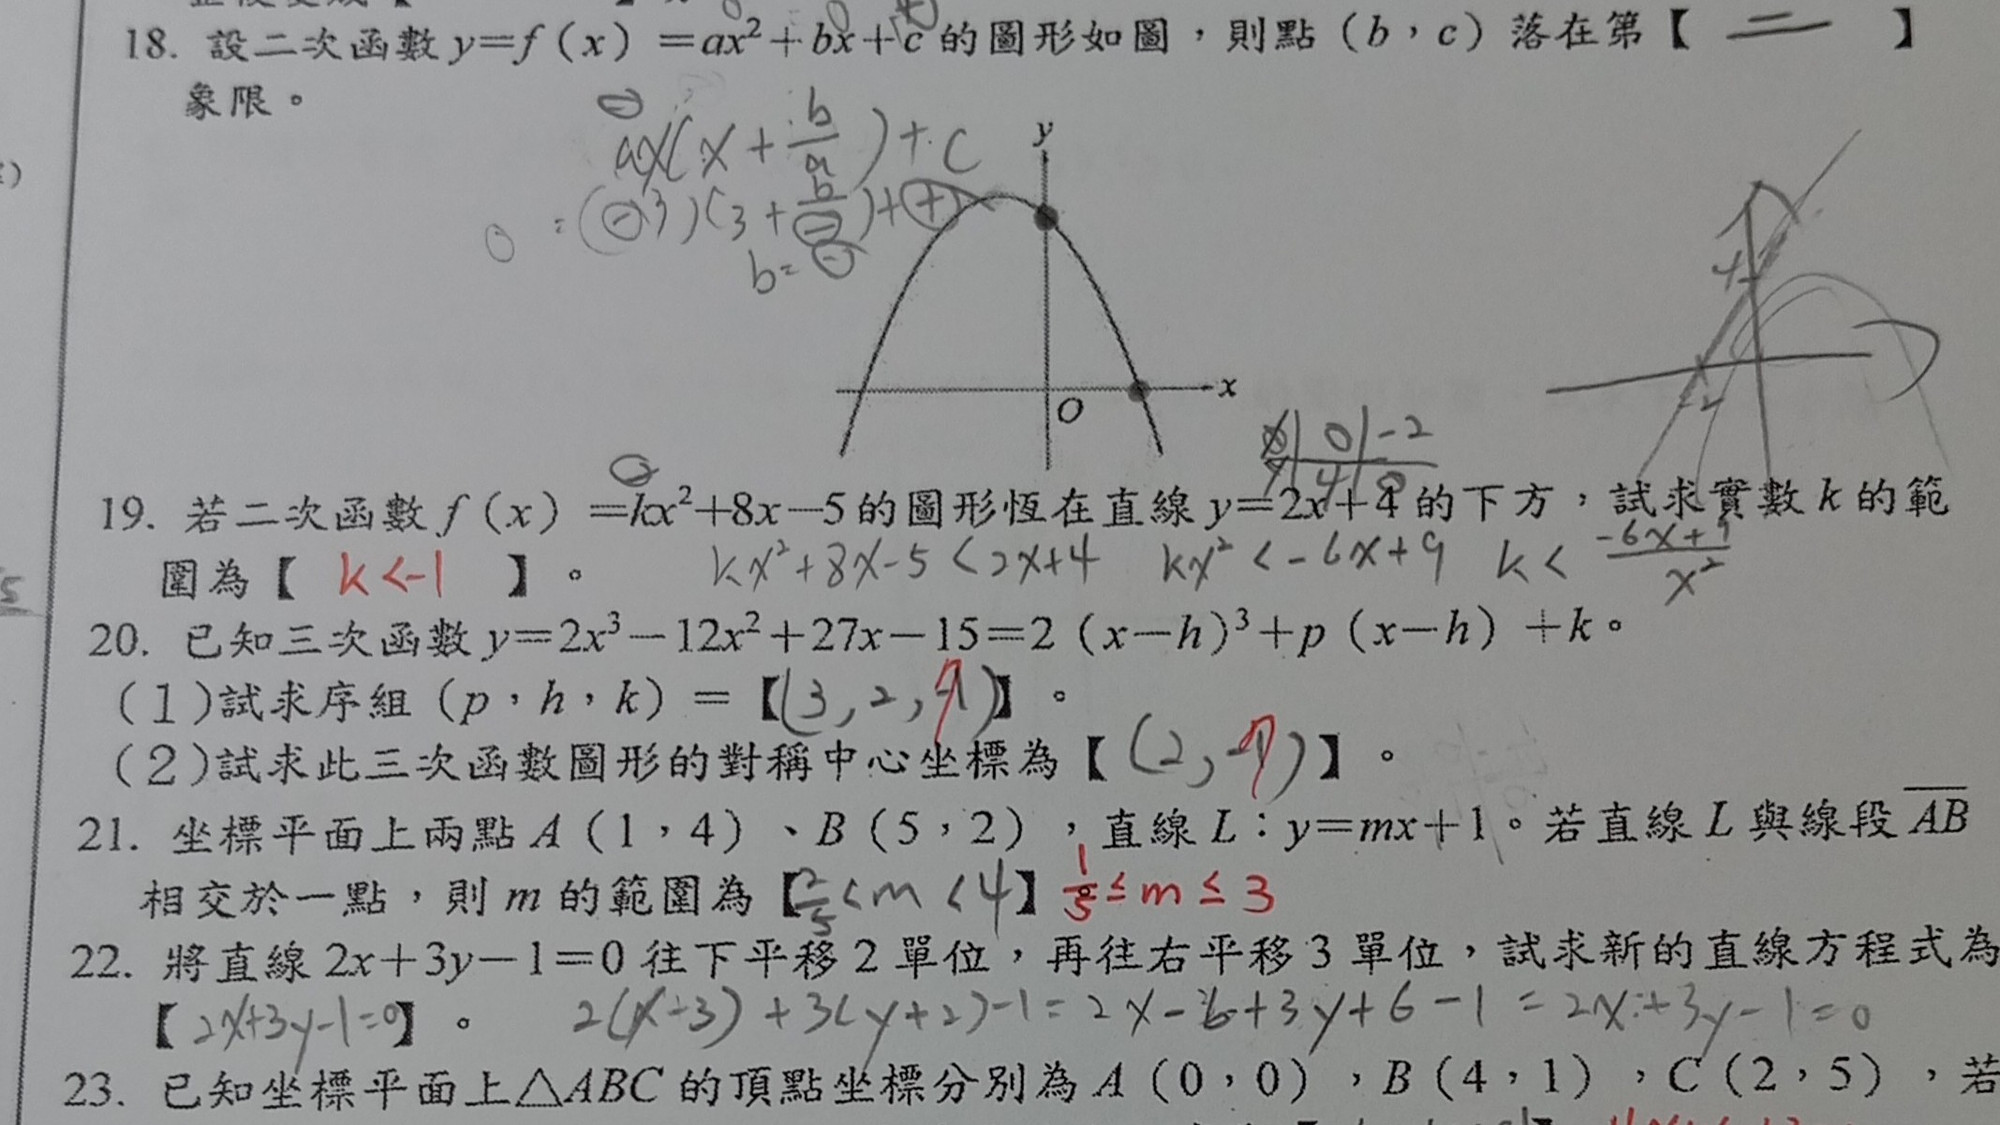 18. 設二次函數 y=f(x)=ax²+bx+c 的圖形如圖，則點(b，c)落在第【 二 】
象限。
ax(x+b/a)+c
0=(⊖3)(3+b/⊖)+⊕
b=⊖
y
x
O
4
-2
x | 0 | -2
y | 4 | 0
19. 若二次函數 f(x)=kx²+8x-5 的圖形恆在直線 y=2x+4 的下方，試求實數 k 的範
圍為【 k<-1 】。 kx²+8x-5<2x+4 kx²<-6x+9 k<(-6x+9)/x²
20. 已知三次函數 y=2x³-12x²+27x-15=2(x-h)³+p(x-h)+k。
(1)試求序組(p，h，k)=【(3,2,7)】。
(2)試求此三次函數圖形的對稱中心坐標為【(2,7)】。
21. 坐標平面上兩點 A(1，4)、B(5，2)，直線 L：y=mx+1。若直線 L 與線段 AB
相交於一點，則 m 的範圍為【2/5<m<4】 1/5≤m≤3
22. 將直線 2x+3y-1=0 往下平移 2 單位，再往右平移 3 單位，試求新的直線方程式為
【2x+3y-1=0】。 2(x-3)+3(y+2)-1=2x-6+3y+6-1=2x+3y-1=0
23. 已知坐標平面上△ABC 的頂點坐標分別為 A(0，0)，B(4，1)，C(2，5)，若